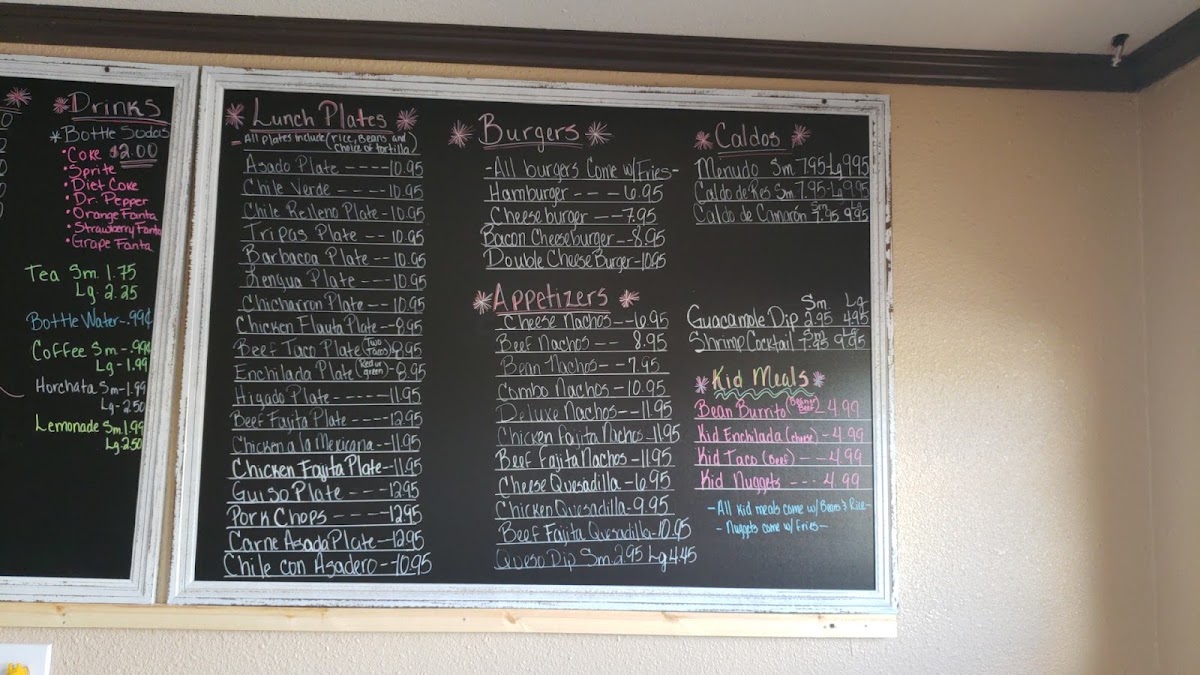 Drinks
Bottle Sodas
$2.00
• Coke
• Sprite
• Diet Coke
• Dr. Pepper
• Orange Fanta
• Strawberry Fanta
• Grape Fanta
Tea Sm. 1.75
Lg. 2.25
Bottle Water-.99¢
Coffee Sm-.99¢
Lg-1.99
Horchata Sm-1.99
Lg-2.50
Lemonade Sm.1.99
Lg.2.50
Lunch Plates
All plates include (rice, Beans and
choice of tortilla)
Asado Plate ---- 10.95
Chile Verde ---- 10.95
Chile Relleno Plate - 10.95
Tripas Plate --- 10.95
Barbacoa Plate -- 10.95
Lengua Plate --- 10.95
Chicharron Plate -- 10.95
Chicken Flauta Plate -- 8.95
Beef Taco Plate (Two Tacos) 8.95
Enchilada Plate (Red or green) - 8.95
Higado Plate ---- 11.95
Beef Fajita Plate --- 12.95
Chicken a la Mexicana - 11.95
Chicken Fajita Plate -- 11.95
Guiso Plate ---- 12.95
Pork Chops ----- 12.95
Carne Asada Plate -- 12.95
Chile con Asadero -- 10.95
Burgers
-All burgers Come w/Fries-
Hamburger --- 6.95
Cheeseburger -- 7.95
Bacon Cheeseburger -- 8.95
Double Cheese Burger - 10.95
Appetizers
Cheese Nachos -- 6.95
Beef Nachos -- 8.95
Bean Nachos -- 7.95
Combo Nachos -- 10.95
Deluxe Nachos -- 11.95
Chicken Fajita Nachos - 11.95
Beef Fajita Nachos - 11.95
Cheese Quesadilla - 6.95
Chicken Quesadilla - 9.95
Beef Fajita Quesadilla - 10.95
Queso Dip Sm. 2.95 Lg 4.45
Caldos
Menudo Sm 7.95-Lg 9.95
Caldo de Res Sm 7.95-Lg 9.95
Caldo de Camarón Sm 7.95 Lg 9.95
Sm Lg
Guacamole Dip 2.95 4.95
Shrimp Cocktail Sm 7.95 Lg 9.95
Kid Meals
Bean Burrito - 4.99
Kid Enchilada (cheese) - 4.99
Kid Taco (Beef) -- 4.99
Kid Nuggets --- 4.99
-All Kid meals come w/ Beans & Rice-
- Nuggets come w/ Fries-